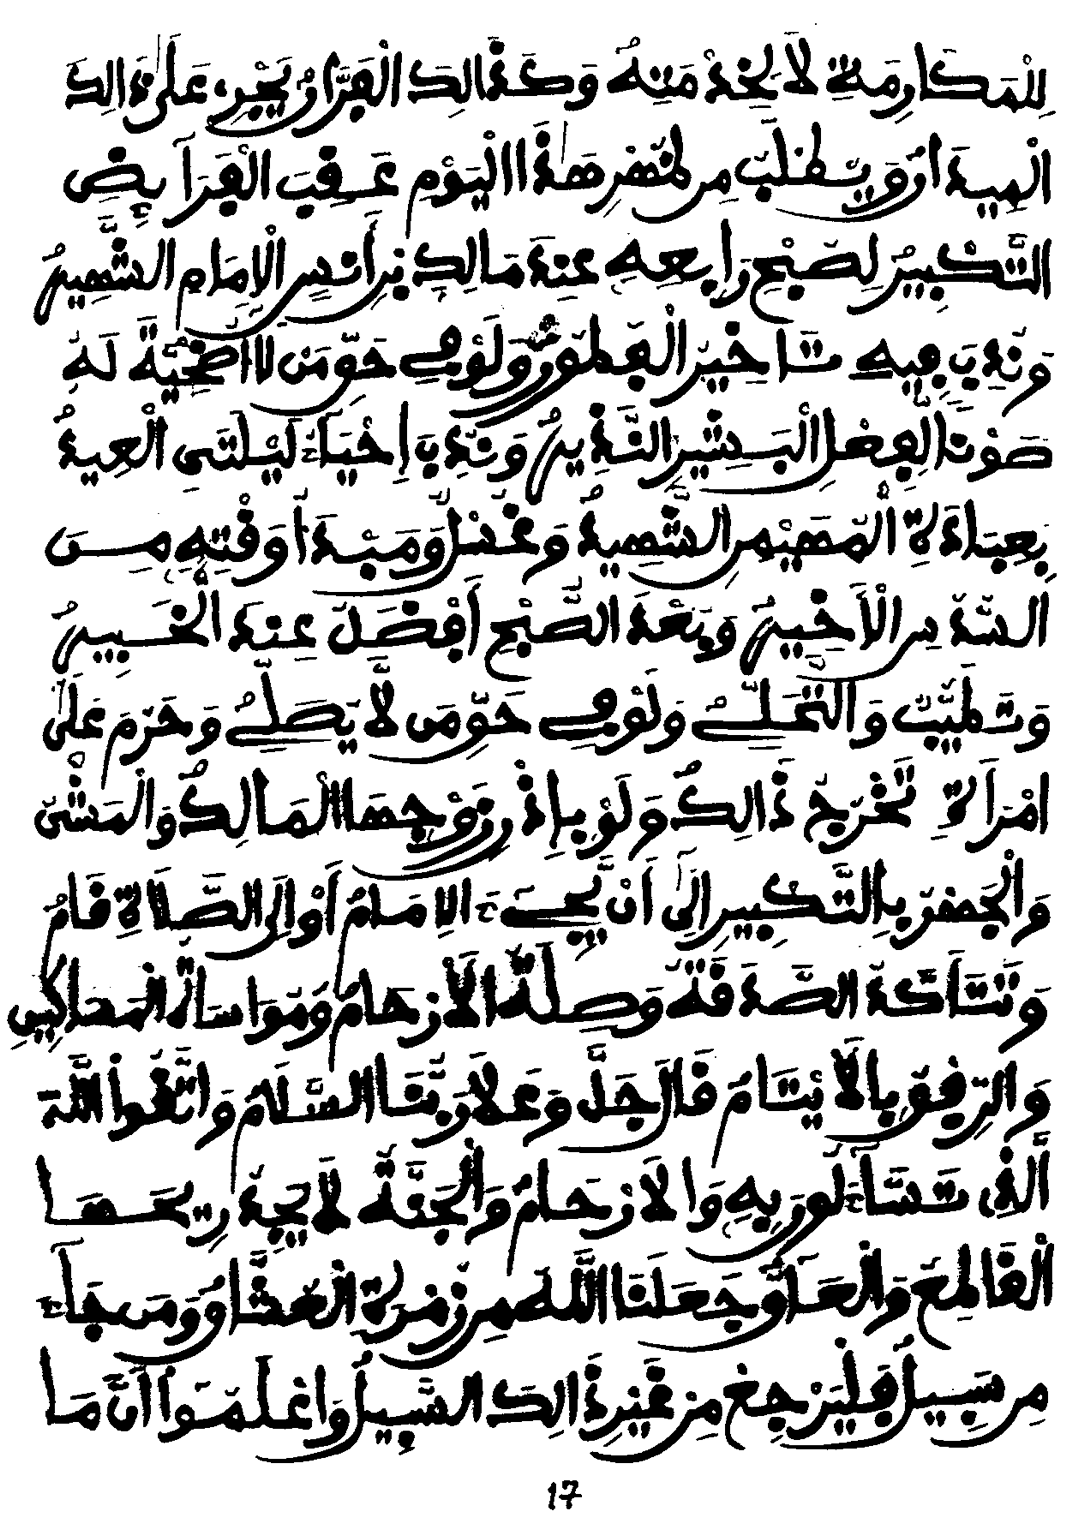 لِلْمَكَارِمَةِ لَا يُخَذْ مِنْهُ وَكَذَالِكَ الْفِرَارُ يَجْرِي عَلَى ذَالِكَ
الْهَيْئَةَ أَوْ وَيُطْلَبُ مِن ظُهْرِ هَذَا الْيَوْمِ عَقِبَ الْفَرَآئِضِ
التَّكْبِيرُ لِصُبْحِ رَابِعِهِ عِنْدَ مَالِكِ بْنِ أَنَسِ الْإِمَامِ الشَّهِيرُ
وَنُدِبَ فِيهِ تَاخِيرُ الْفُطُورِ وَلَوْ فِي حَقِّ مَن لَا أُضْحِيَّةَ لَهُ
الْفِطْرِ الْبَشِيرُ النَّذِيرُ وَنُدِبَ إِحْيَاءُ لَيْلَتَيِ الْعِيدُ
بِعِبَادَةِ الْمُهَيْمِنِ الشَّهِيدُ وَغُسْلٌ وَمَبْدَأُ وَقْتِهِ مِن
السُّدُسِ الْأَخِيرُ وَبَعْدَ الصُّبْحِ أَفْضَلُ عِنْدَ الْخَبِيرُ
وَتَطَيُّبٌ وَالتَّحَلِّي وَلَوْ فِي حَقِّ مَن لَّا يُصَلِّي وَحَرُمَ عَلَى
امْرَأَةٍ تَخْرُجُ ذَالِكُ وَلَوْ بِإِذْنِ زَوْجِهَا الْمَالِكُ وَالْمَشْيُ
وَالْجَهْرُ بِالتَّكْبِيرِ إِلَى أَنْ يَّجِيءَ الْإِمَامُ أَوْ إِلَى الصَّلَاةِ قَامُ
وَتَتَأَكَّدُ الصَّدَقَةُ وَصِلَةُ الْأَرْحَامُ وَمُوَاسَاةُ الْمَسَاكِينِ
وَالرِّفْقُ بِالْأَيْتَامُ قَالَ جَلَّ وَعَلَا رَبُّنَا السَّلَامُ وَاتَّقُوا اللَّهَ
الَّذِي تَسَّآءَلُونَ بِهِ وَالْأَرْحَامُ وَالْجَنَّةُ لَا يَجِدُ رِيحَهَا
الْقَاطِعُ وَالْعَاقُّ جَعَلَنَا اللَّهُ مِن زُمْرَةِ الْعُشَّاقُ وَمَن جَاءَ
مِن سَبِيلٍ فَلْيَرْجِعْ مِنْ غَيْرِ ذَالِكَ السَّبِيلُ وَاعْلَمُوا أَنَّ مَا
17